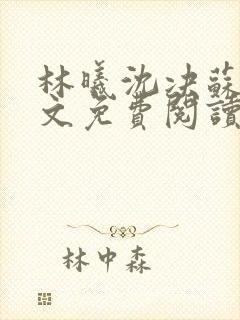 林曦沈决蘇
文免費閱讀
林中森